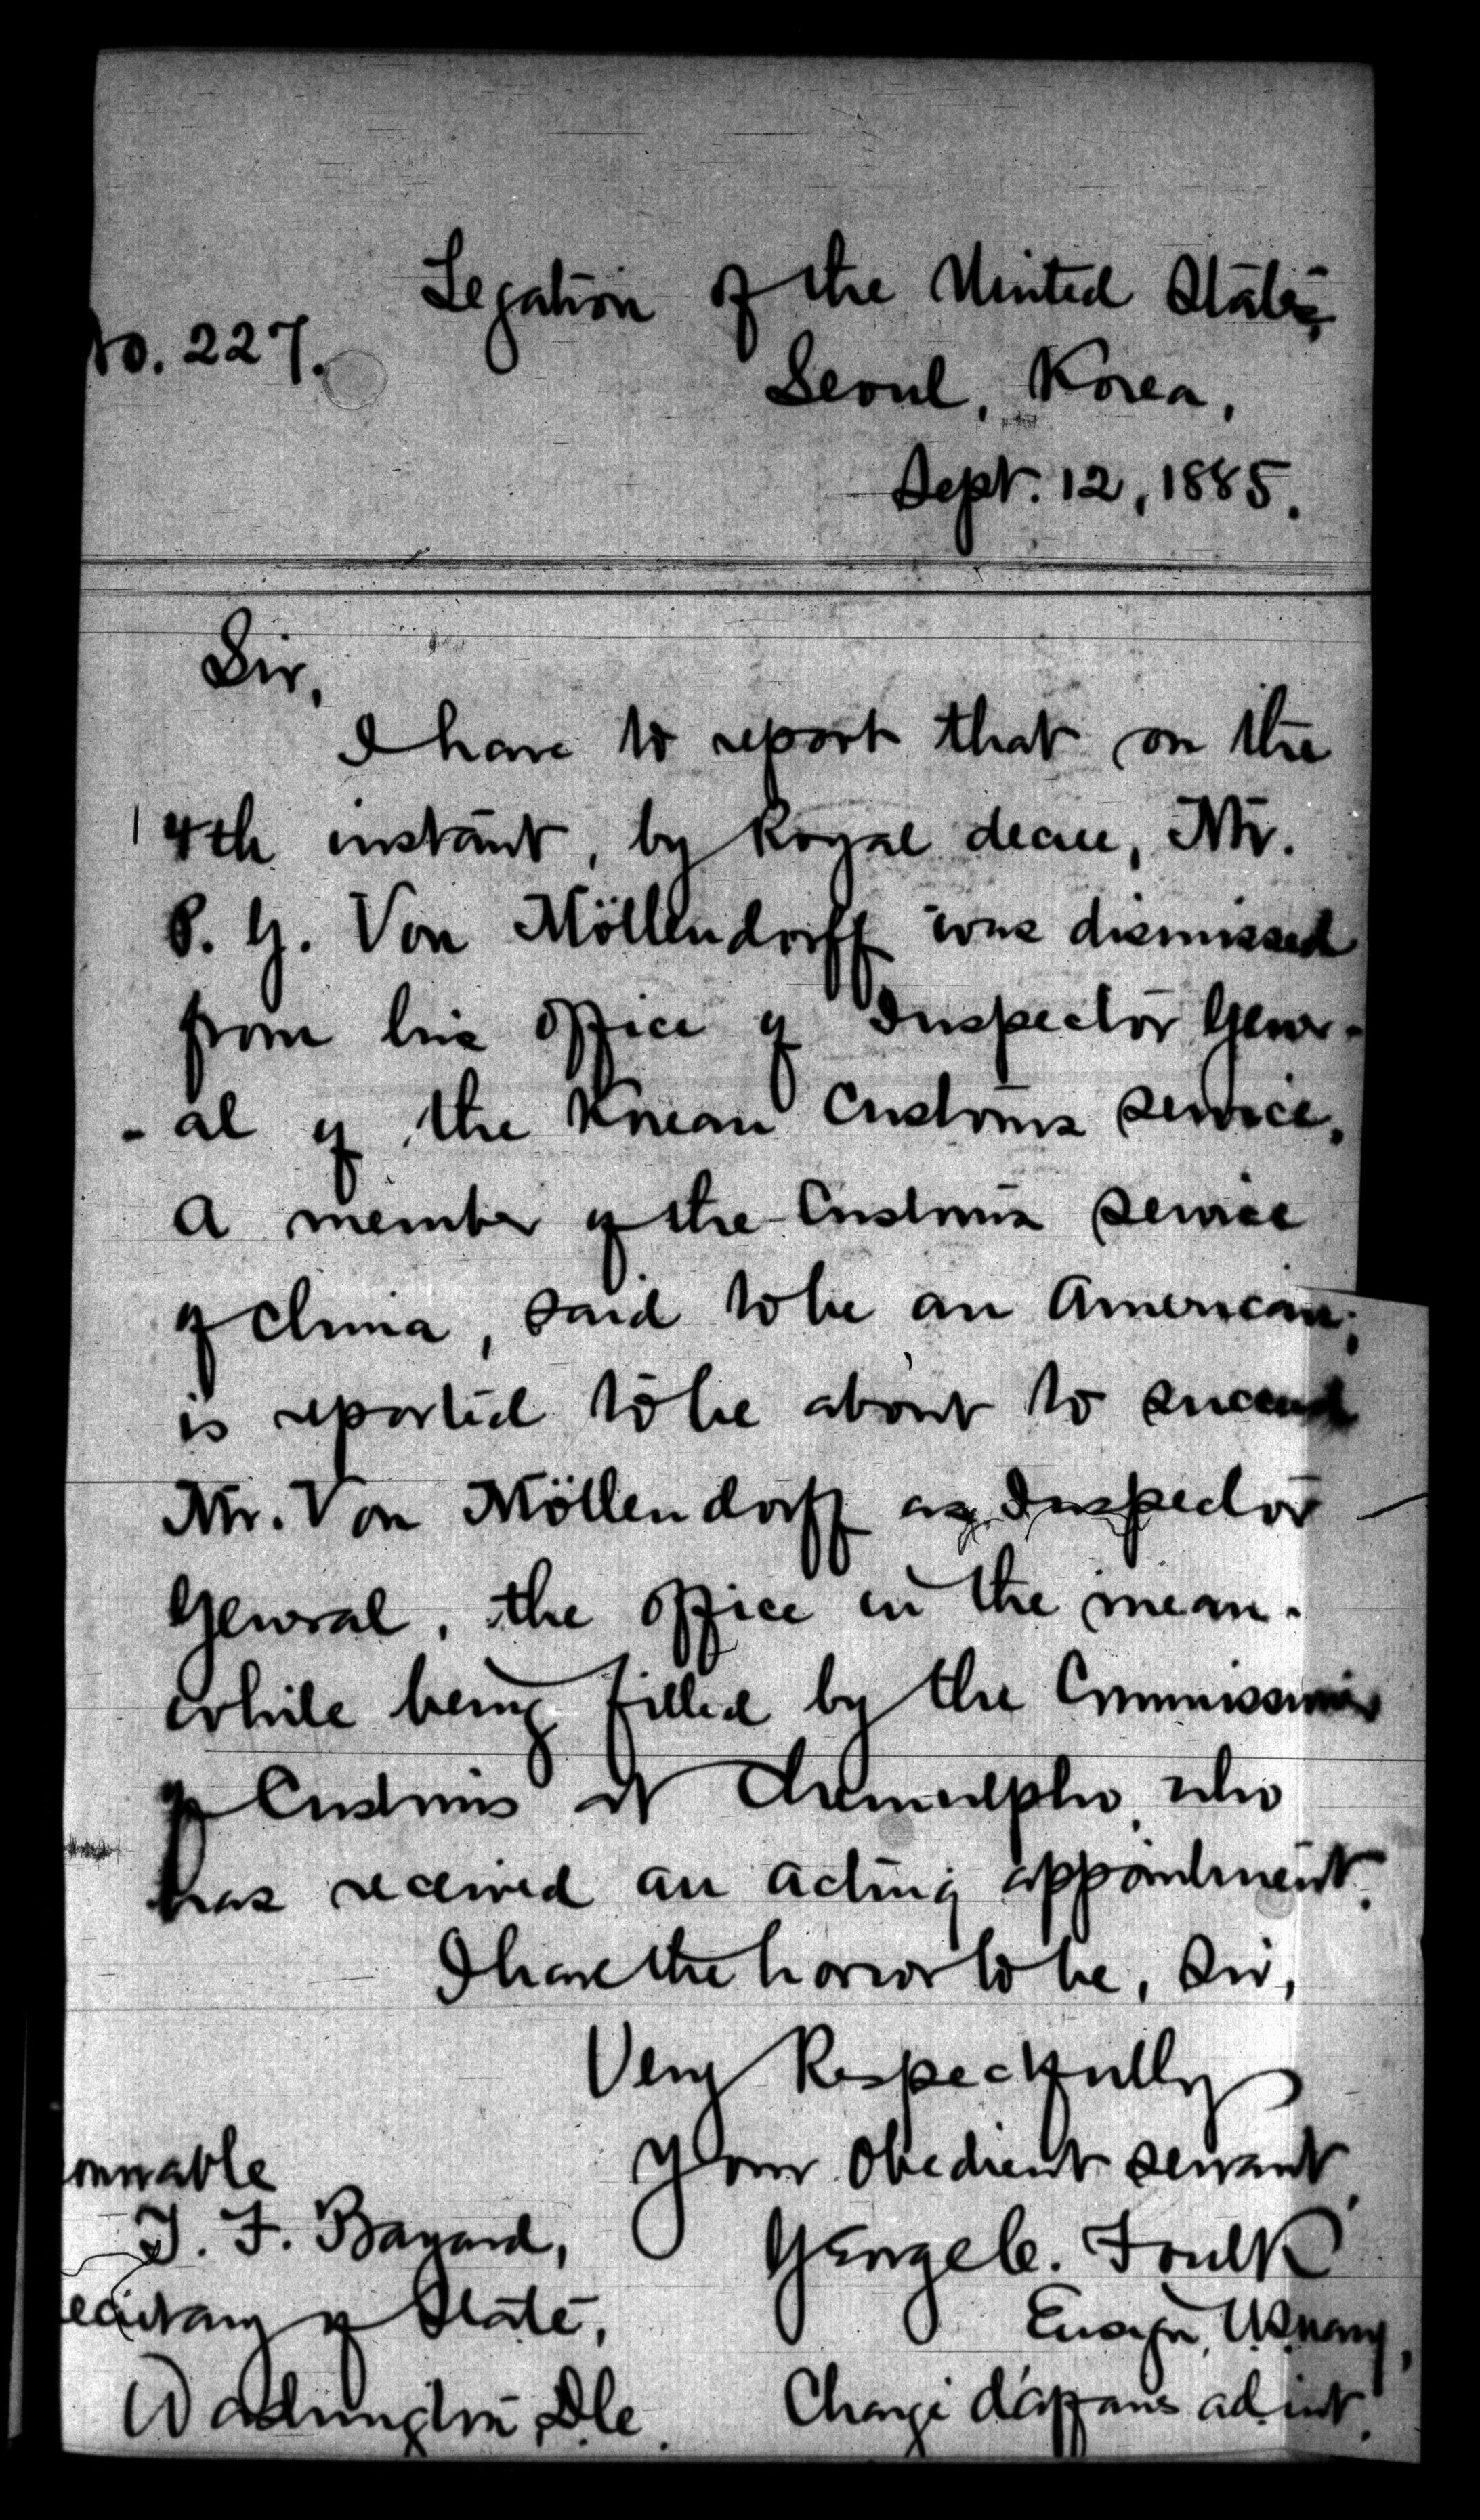 Legation of the United States,
No. 227.
Seoul, Korea,
Sept. 12, 1885.
Sir,
I have to report that on the
4th instant, by Royal decree, Mr.
P. G. Von Möllendorff was dismissed
from his office of Inspector Gener-
-al of the Korean Customs service.
A member of the Customs service
of China, said to be an American,
is reported to be about to succeed
Mr. Von Möllendorff as Inspector
General, the office in the mean-
while being filled by the Commissioner
of Customs at Chemulpho, who
has received an acting appointment.
I have the honor to be, Sir,
Very Respectfully
Your obedient servant,
onorable
George C. Foulk
T. F. Bayard,
Ensign, U.S. Navy,
ecretary of State,
Chargé d'affaires ad. int.
Washington, D.C.